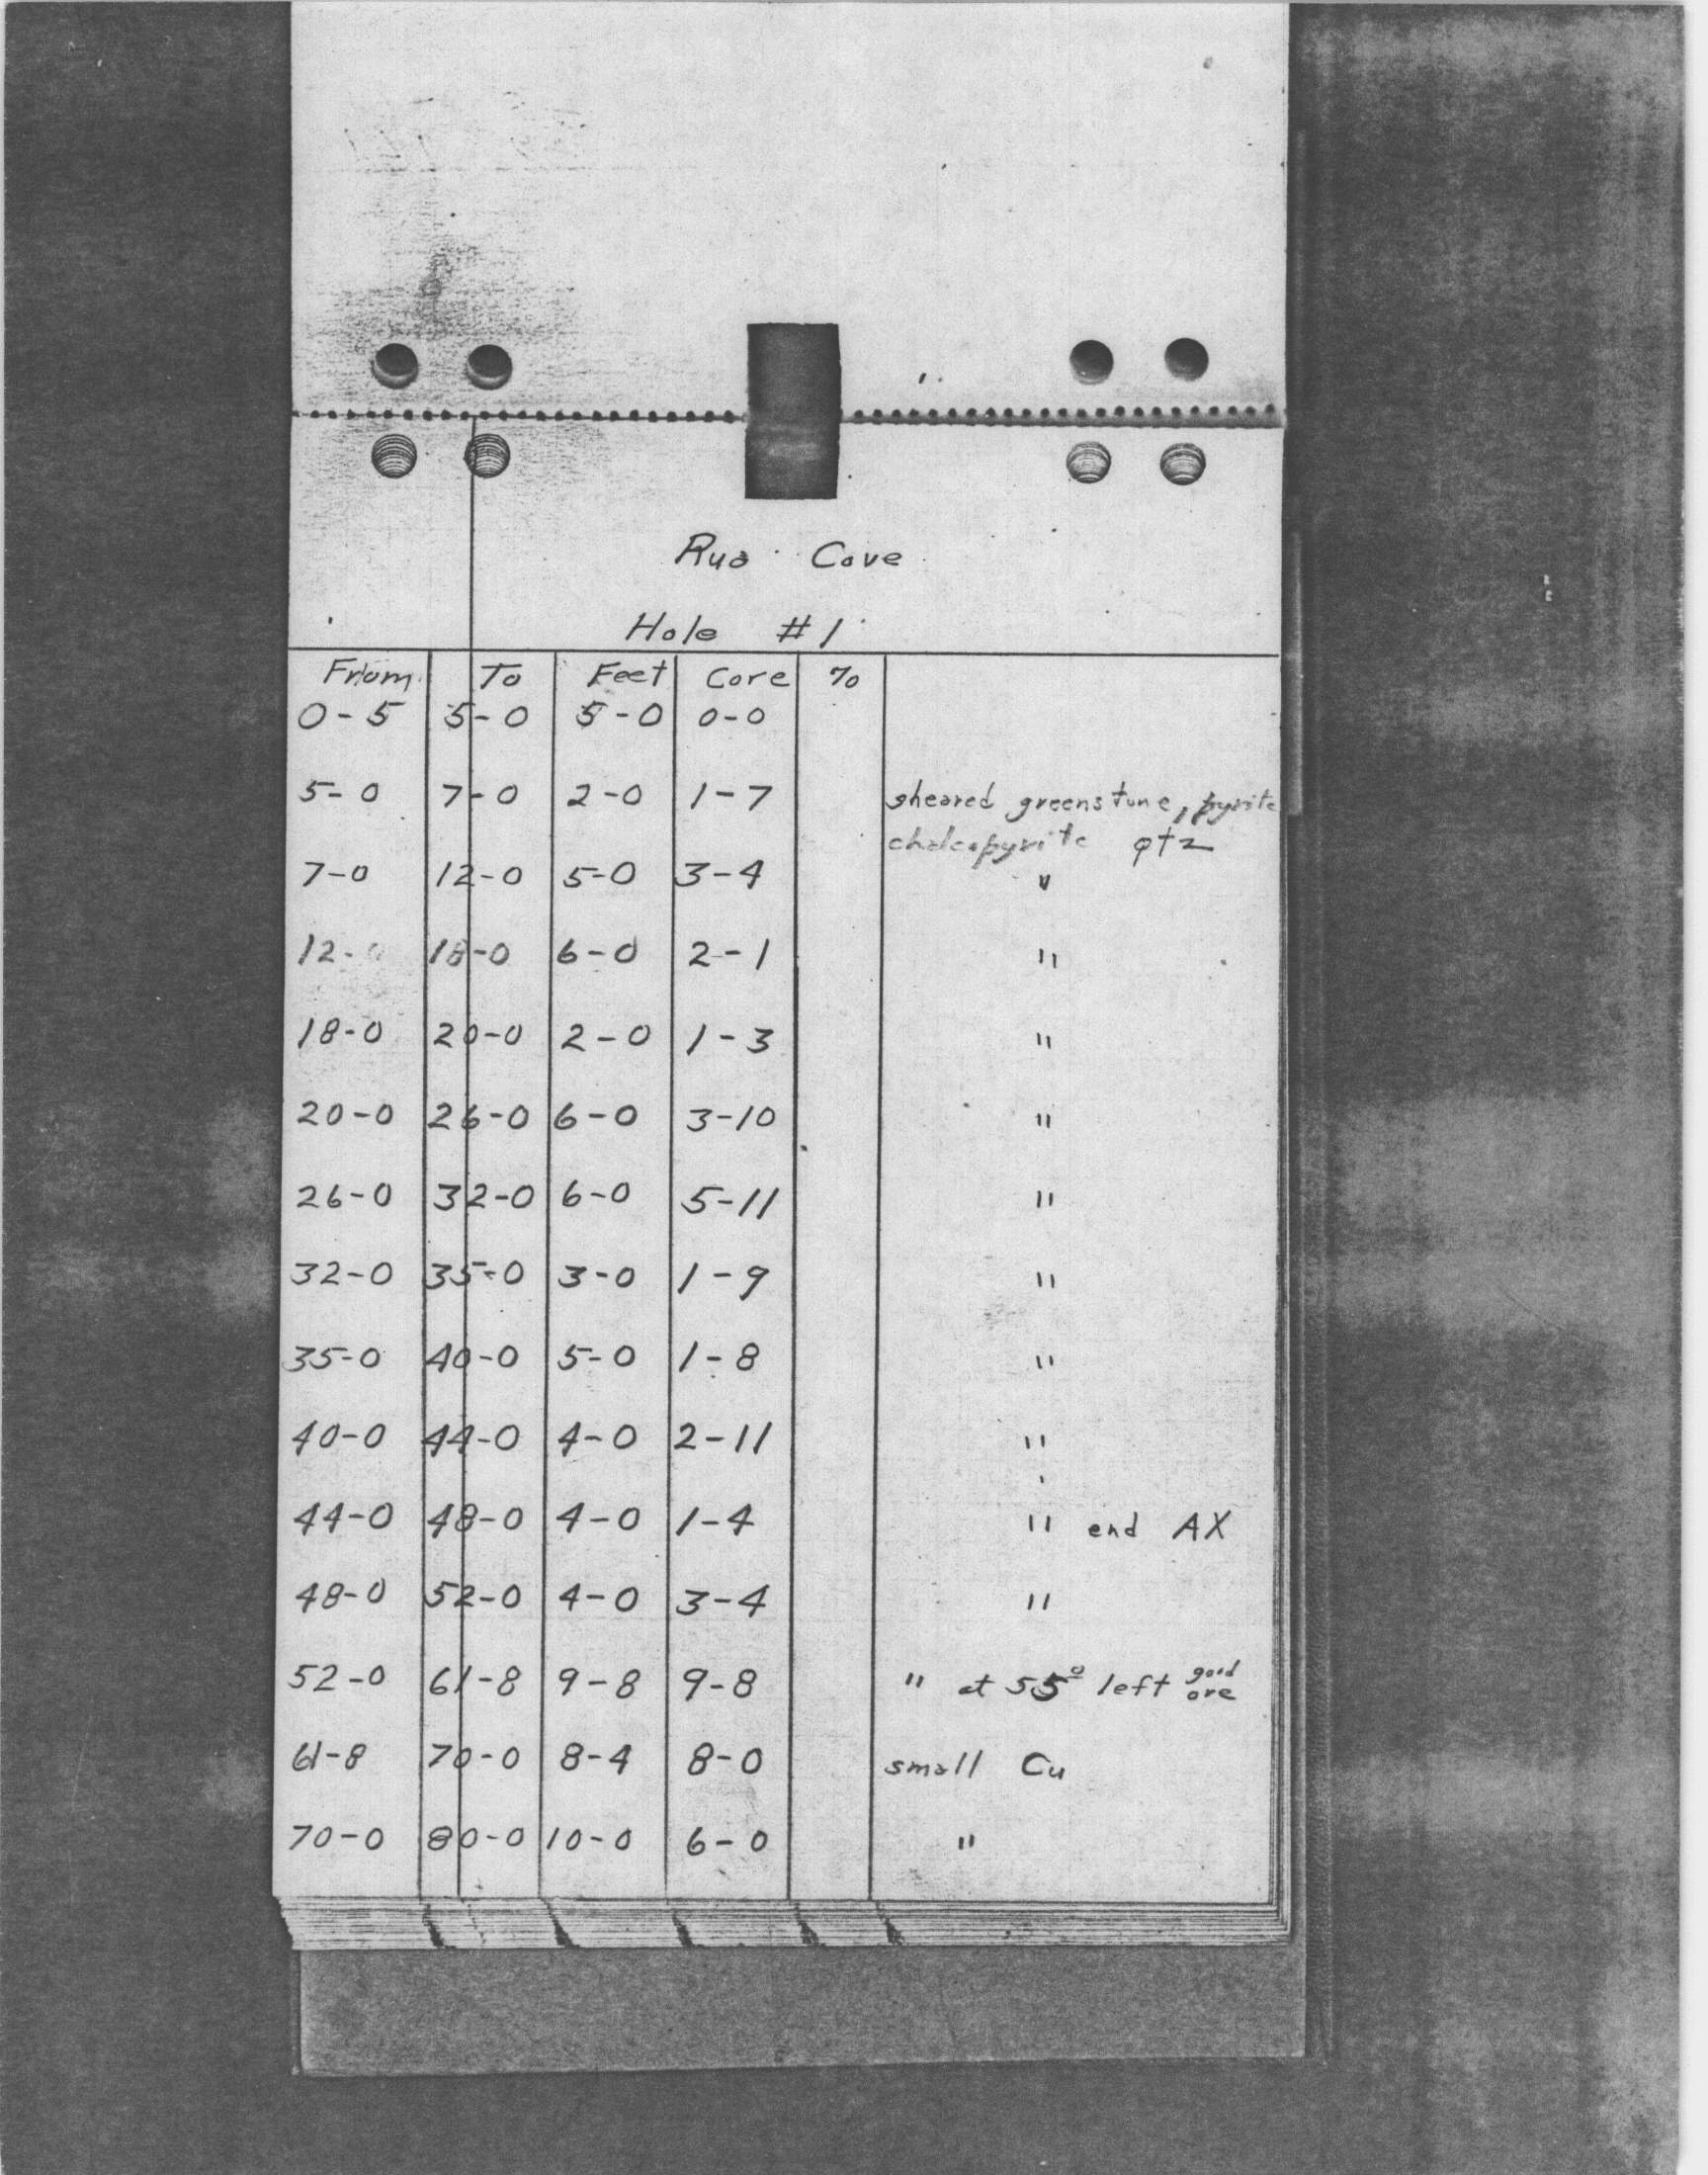 Rua Cove
Hole #1
From To Feet Core %
0-5 5-0 5-0 0-0
5-0 7-0 2-0 1-7 sheared greenstone, pyrite
chalcopyrite qtz
7-0 12-0 5-0 3-4 "
12- 18-0 6-0 2-1 "
18-0 20-0 2-0 1-3 "
20-0 26-0 6-0 3-10 "
26-0 32-0 6-0 5-11 "
32-0 35-0 3-0 1-9 "
35-0 40-0 5-0 1-8 "
40-0 44-0 4-0 2-11 "
44-0 48-0 4-0 1-4 " end AX
48-0 52-0 4-0 3-4 "
52-0 61-8 9-8 9-8 " at 55° left good ore
61-8 70-0 8-4 8-0 small Cu
70-0 80-0 10-0 6-0 "